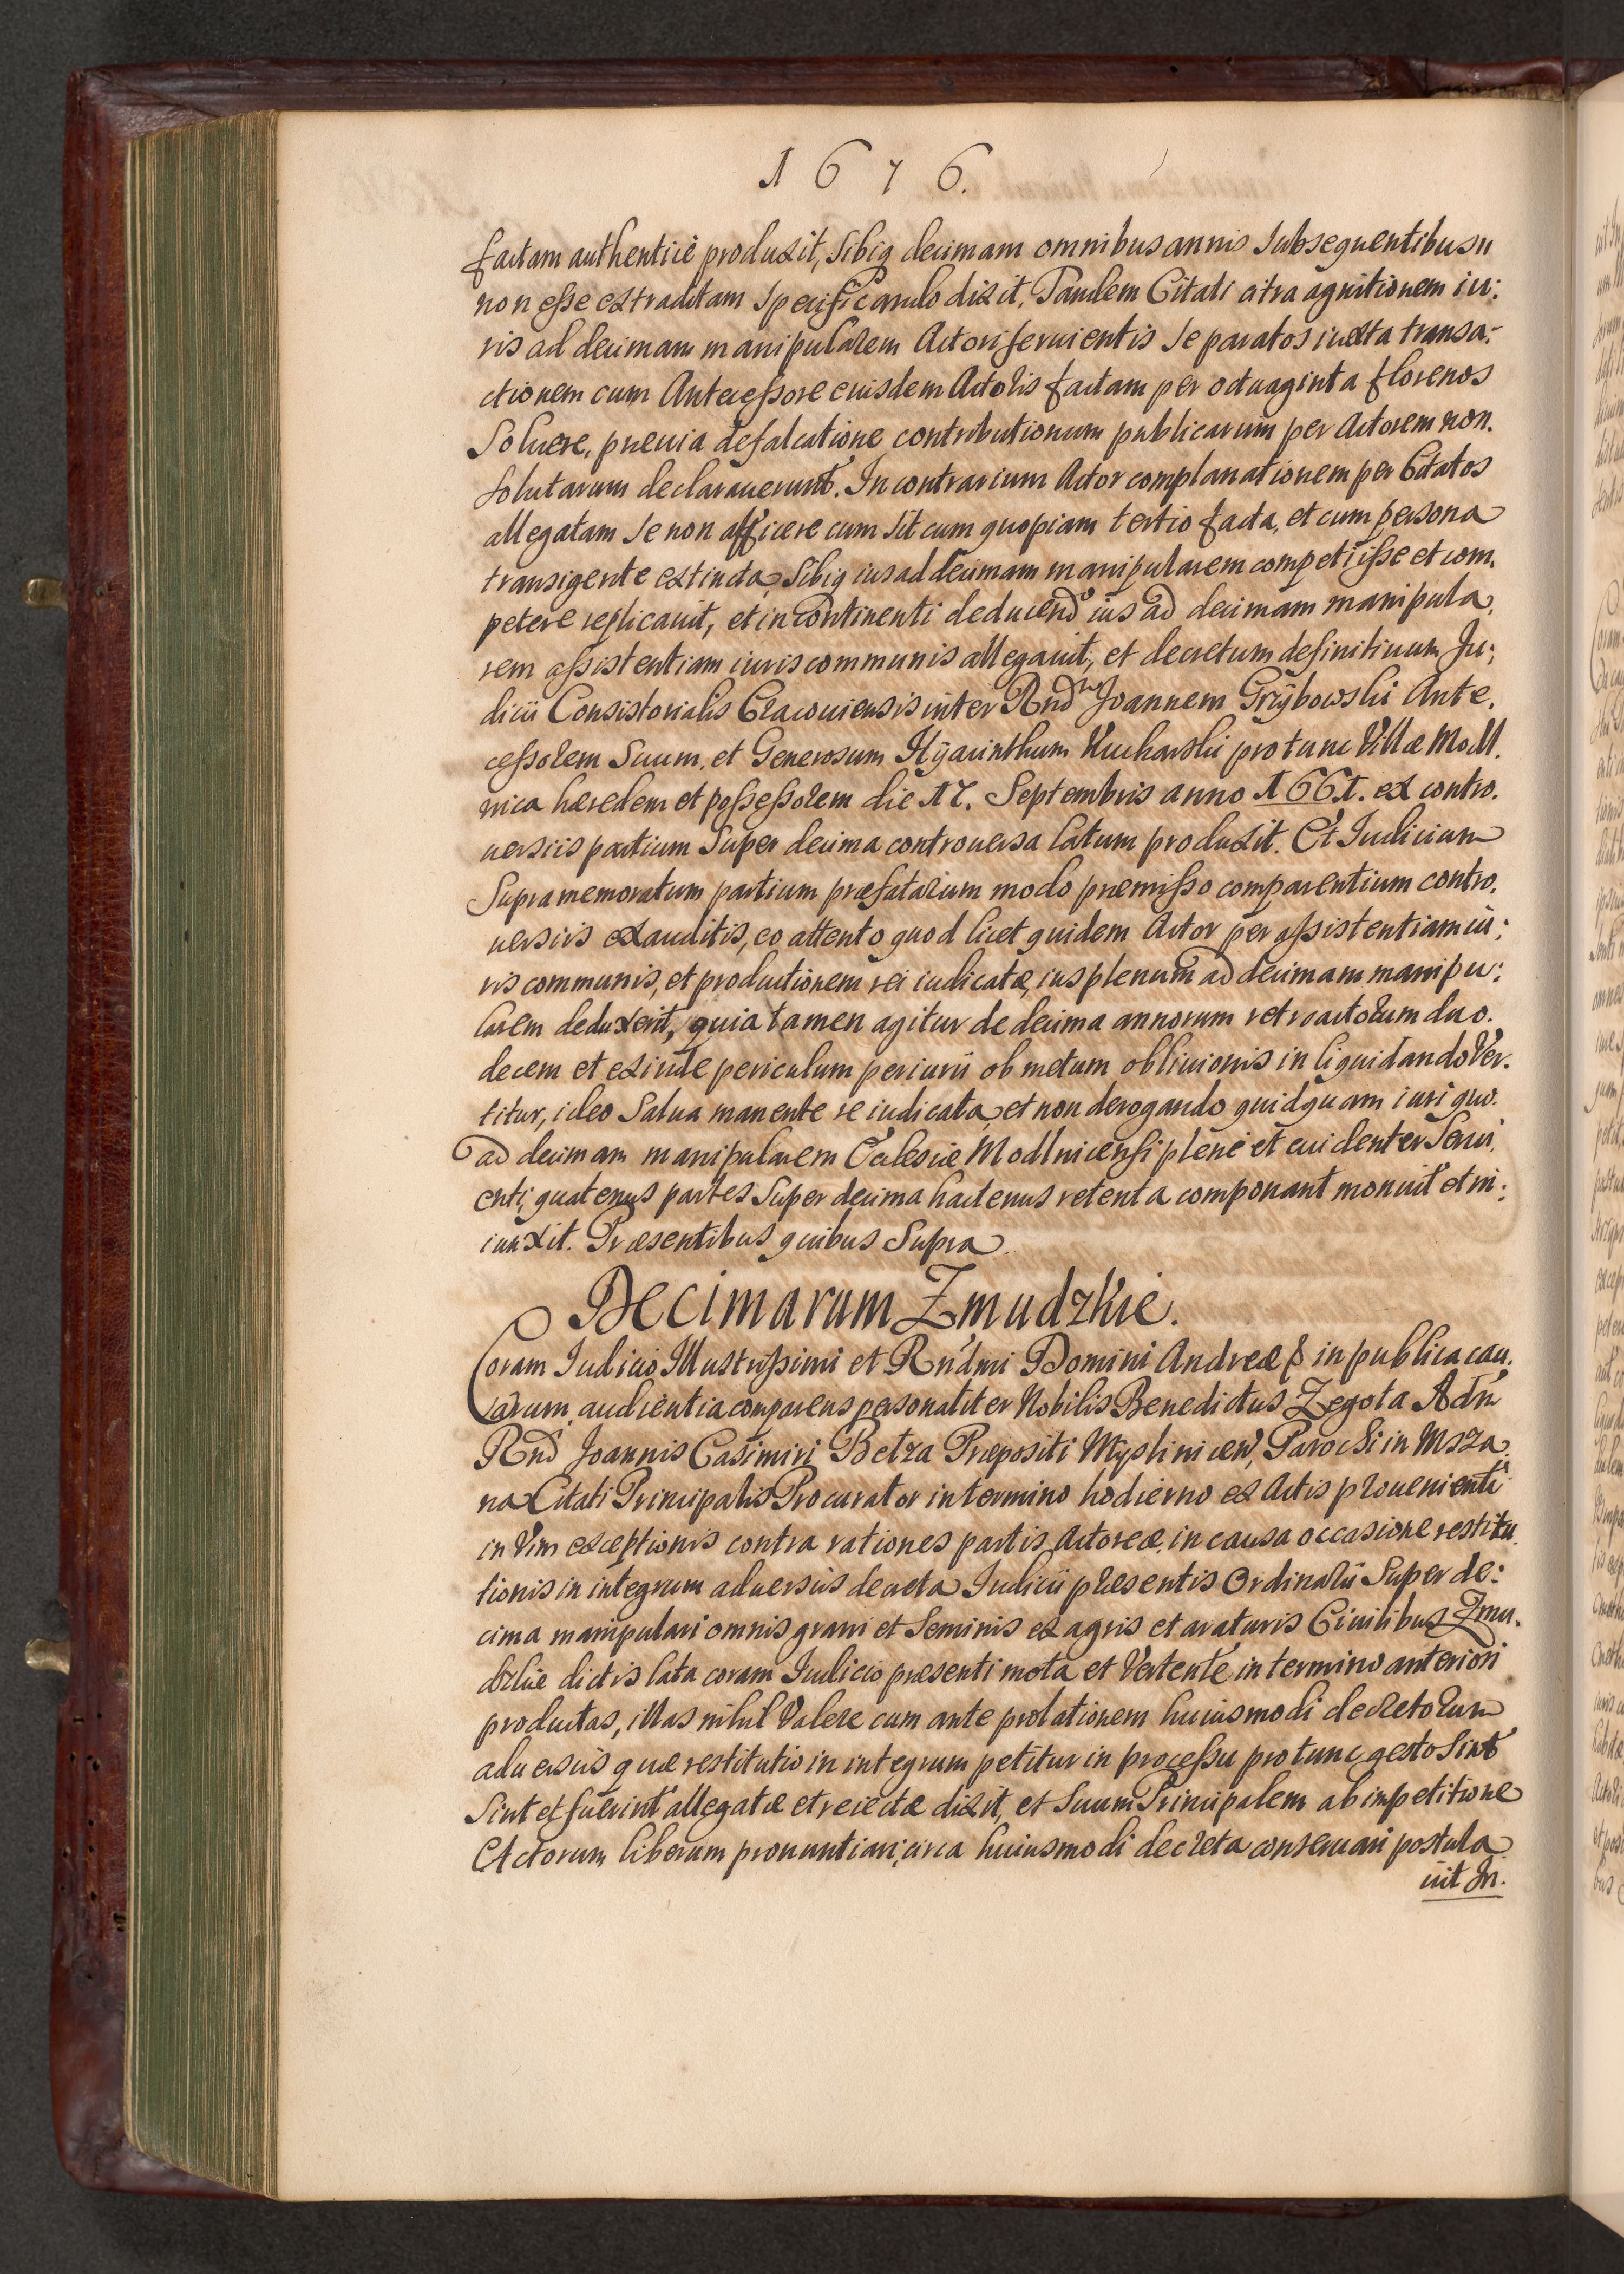 1676.
factam authenticè produxit, Sibiq decimam omnibus annis subsequentibus
non esse extraditam specificando dixit, Tandem Citati citra agnitionem iu:
ris ad decimam manipularem Actori seruientis se paratos iuxta transa-
ctionem cum Antecessore eiusdem Actoris factam per octuaginta florenos
Soluere, preuia defalcatione contributionum publicarum per Actorem non.
solutarum declarauerunt. In contrarium Actor complanationem per Citatos
allegatam se non afficere cum sit cum quopiam tertio facta, et cum persona
transigente extincta, Sibiq ius ad decimam manipularem competiisse et com,
petere replicauit, et in continenti deducendo ius ad decimam manipula,
rem assistentiam iuris communis allegauit, et decretum definitiuum Ju:
dicii Consistorialis Cracouiensis inter Rnd Joannem Grzybowski Ante,
cessorem Suum, et Generosum Hyacinthum Kucharski pro tunc Villæ Modl.
nica hæredem et possessorem die 17. Septembris anno 1661. ex contro.
uersiis partium Super decima controuersa latum produxit. Et Iudicium
Supra memoratum partium præfatarum modo premisso comparentium contro,
uersiis exauditis, eo attento quod licet quidem Actor per assistentiam iu:
ris communis, et productionem rei iudicatæ, ius plenum ad decimam manipu:
larem deduxerit, quia tamen agitur de decima annorum retroactorum duo.
decem et exinde periculum periurii ob metum obliuionis in liquidando Ver.
titur, ideo Salua manente re iudicata, et non derogando quidquam iuri quo.
ad decimam manipularem Ecclesiæ Modlnicensi plenè et euidenter Serui,
enti, quatenus partes Super decima hactenus retenta componant monuit et in:
iunxit. Præsentibus quibus Supra
Decimarum Zmudzkie.
Coram Iudicio Illustrissimi et Rndmi Domini Andreæ in publica cau,
sarum audientia comparens personaliter Nobilis Benedictus Zegota Adm
Rnd Joannis Casimiri Betza Præpositi Myslinicen, Parochi in Msza
na Citati Principalis Procurator in termino hodierno ex Actis prouenienti
in Vim exceptionis contra rationes partis Actoreæ in causa occasione restitu,
tionis in integrum aduersus decreta Iudicii præsentis Ordinarii Super de:
cima manipulari omnis grani et Seminis ex agris et araturis Ciuilibus Zmu.
dzkie dictis lata coram Iudicio presenti mota et Vertente in termino anteriori
productas, illas nihil Valere cum ante prolationem huiusmodi decretorum
aduersus quæ restitutio in integrum petitur in processu pro tunc gesto Sint
Sint et fuerint allegatæ et reiectæ dixit, et Suum Principalem ab impetitione
Actorum liberum pronuntiari, circa huiusmodi decreta conseruari postula
uit In.